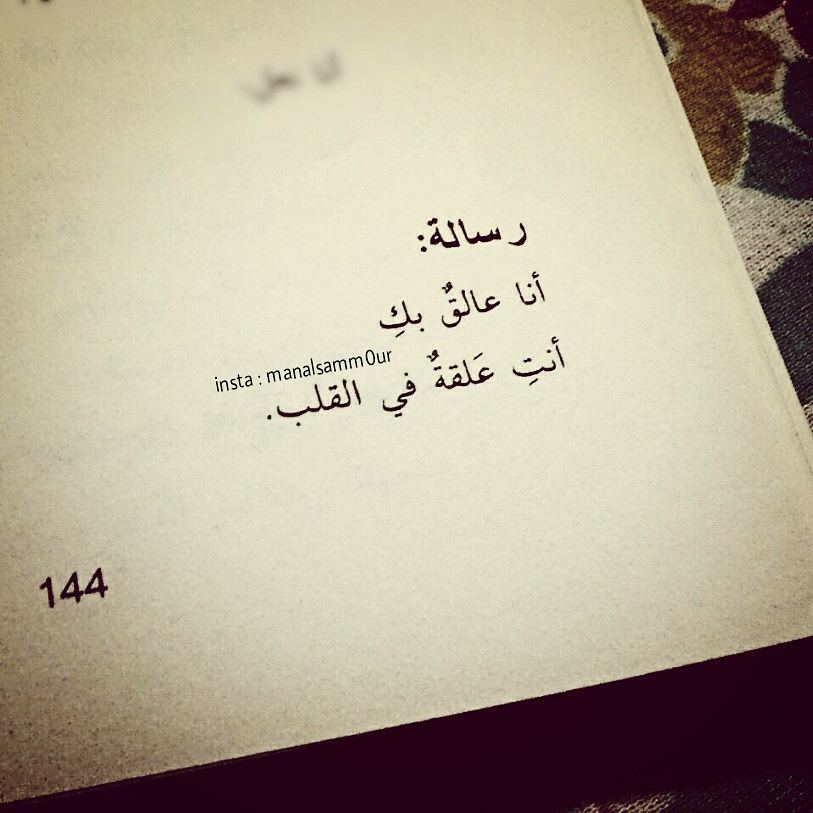 رسالة:
أنا عالقٌ بكِ
insta : manalsamm0ur
أنتِ عَلقةٌ في القلب.
144